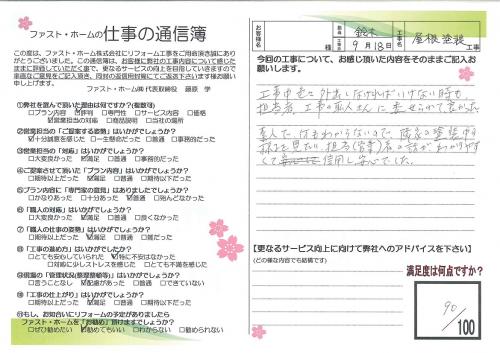 ファスト・ホームの仕事の通信簿
この度は、ファスト・ホーム株式会社にリフォーム工事をご用命頂き誠にあり
がとうございました。この通信簿は、お客様に弊社の工事内容について感じた
ままに評価していただく事で、更なるサービスの向上を目指していきますので
率直なご意見をご記入頂き、同封の返信用封筒にてご返送下さいます様お願い
申し上げます。
ファスト・ホーム㈱ 代表取締役 藤原 学
①弊社を選んで頂いた理由は何ですか?(複数可)
□プラン内容 □評判 □専門性 □サービス内容 □価格
☑営業担当の対応 □商品説明 □当社の場所
②営業担当の「ご提案する姿勢」はいかがでしょうか?
☑十分誠意を感じた □一生懸命だった □普通 □事務的だった
③営業担当の「対応」はいかがでしょうか?
□大変良かった ☑満足 □普通 □事務的だった
④ご提案させて頂いた「プラン内容」はいかがでしょうか?
□期待以上だった ☑満足 □普通 □期待以下だった
⑤プラン内容に「専門家の意見」はありましたでしょうか?
□かなりあった □十分あった ☑普通 □殆んどなかった
⑥「職人の対応」はいかがでしょうか?
□大変良かった ☑満足 □普通 □良くなかった
⑦「職人の仕事の姿勢」はいかがでしょうか?
□期待以上だった ☑満足 □普通 □期待以下だった
⑧「工事の進め方」はいかがでしたか?
□とても安心できた ☑特に不安はなかった
□対応に少しストレスを感じた □とても不満を感じた
⑨現場の「管理状況(整理整頓等)」はいかがでしょうか?
□言うことなし ☑配慮があった □普通 □できていない
⑩「工事の仕上がり」はいかがでしょうか?
□期待以上だった ☑満足 □普通 □期待以下だった
⑪もし、お知合いにリフォームの予定がありましたら
ファスト・ホームを「お勧め」頂けますでしょうか?
□ぜひ勧めたい ☑勧めてもいい □わからない □勧められない
お客様名 鈴木 様
工事 9月18日
工事名 屋根塗装 工事
今回の工事について、お感じ頂いた内容をそのままご記入お
願いします。
工事中も外出しなければいけない時も
担当者、工事の職人さんに任せられて良かった
【更なるサービス向上に向けて弊社へのアドバイスを下さい】
(どの様な内容でも結構です)
満足度は何点ですか?
90
/100